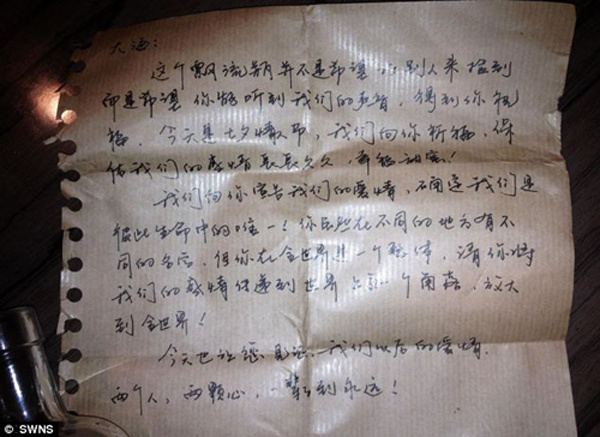 大海:
这个飘流瓶并不是希望 别人来捡到
却是希望 你能听到我们的声音, 得到你祝
福, 今天是七夕情人节, 我们向你祈福, 保
佑我们的感情长长久久, 甜蜜!
我们向你宣告我们的爱情, 我们是
彼此生命中的唯一! 你虽然在不同的地方有不
同的名字, 但你在全世界是一个整体, 请你将
我们的感情传递到世界 个角落, 放大
到全世界!
今天也让您见证 我们以后的爱情.
两个人, 两颗心, 一辈到永远!
© SWNS